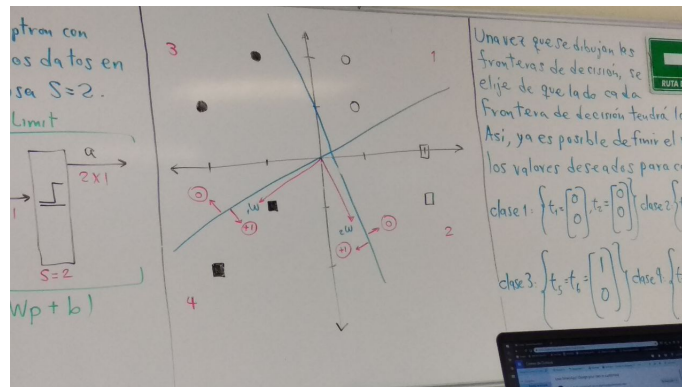 ptron con
os datos en
sa S=2.
Limit
a
2x1
1
S=2
Wp + b)
3
1
2
4
0
+1
0
+1
Una vez que se dibujan las
fronteras de decisión, se
elije de que lado cada
frontera de decisión tendrá l
Así, ya es posible definir el
los valores deseados para c
clase 1: { t₁=[0 0], t₂=[0 0] } clase 2 {
clase 3: { t₅=t₆=[1 0] } clase 4: { t
RUTA